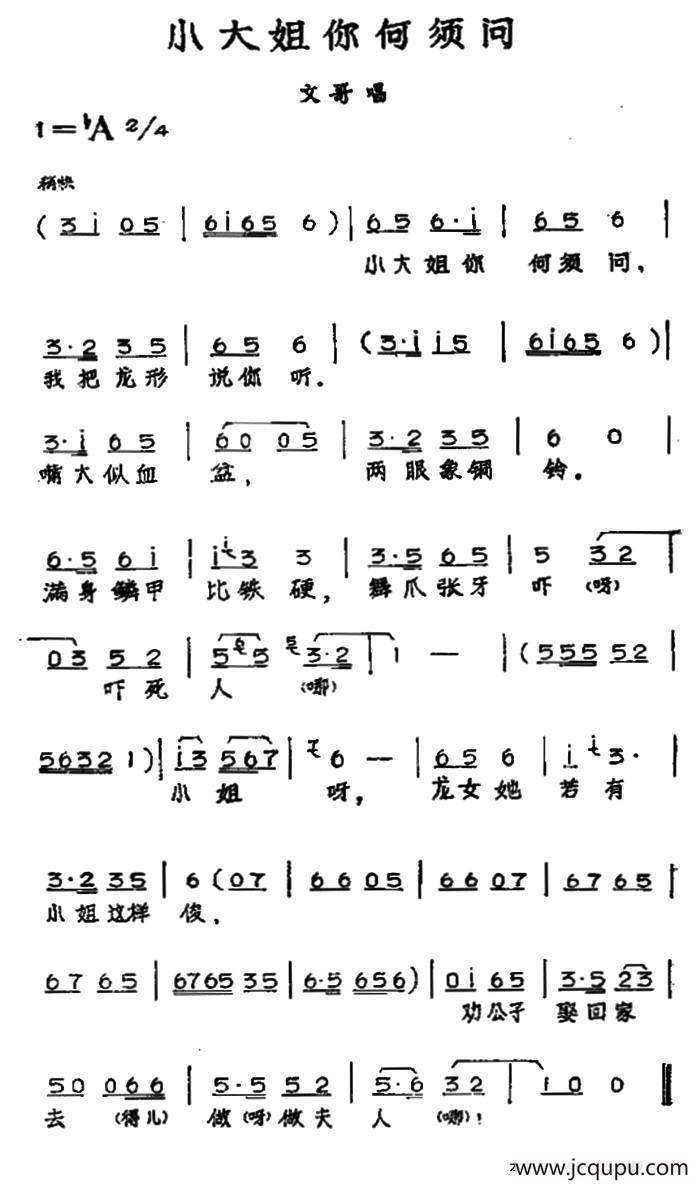 小大姐你何须问
文哥唱
1=♭A 2/4
稍快
(3i 05 | 6i65 6)| 65 6·i | 65 6 |
小大姐你 何须问，
3·2 35 | 65 6 | (3·i i5 | 6i65 6)|
我把龙形 说你听.
3·i 65 | 60 05 | 3·2 35 | 6 0 |
嘴大似血 盆， 两眼象铜 铃。
6·5 6i | i3 3 | 3·5 65 | 5 32 |
满身鳞甲 比铁硬， 舞爪张牙 吓(呀)
03 52 | 5 5 3·2 | 1 — | (555 52 |
吓死 人(哪)
5632 1)| i3 567 | 6 — | 65 6 | i 3· |
小姐 呀， 龙女她 若有
3·2 35 | 6 (07 | 66 05 | 66 07 | 67 65 |
小姐这样 俊，
67 65 | 6765 35 | 6·5 656) | 0i 65 | 3·5 23 |
劝公子 娶回家
50 066 | 5·5 52 | 5·6 32 | 100 0 ‖
去 (得儿) 做(呀)做夫 人(哪)！
www.jcqupu.com